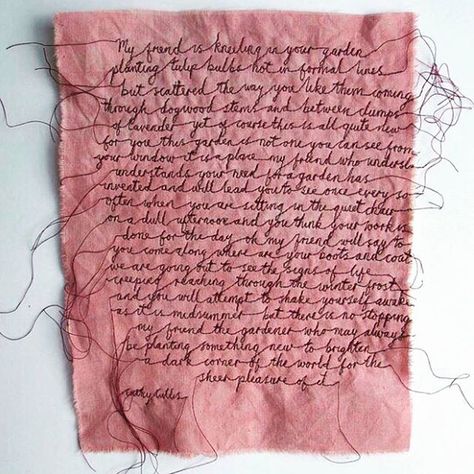 My friend is kneeling in your garden
planting tulip bulbs not in formal lines
but scattered the way you like them coming
through dogwood stems and between clumps
of lavender yet of course this is all quite new
for you this garden is not one you can see from
your window it is a place my friend who understa
understands your need for a garden has
invented and will lead you to see once every so
often when you are sitting in the quiet chair
on a dull afternoon and you think your work is
done for the day oh my friend will say to
you come along where are your boots and coat
we are going out to see the signs of life
creeping reaching through the winter frost
and you will attempt to shake yourself awake
as it is midsummer but there is no stopping
my friend the gardener who may always
be planting something new to brighten
a dark corner of the world for the
sheer pleasure of it